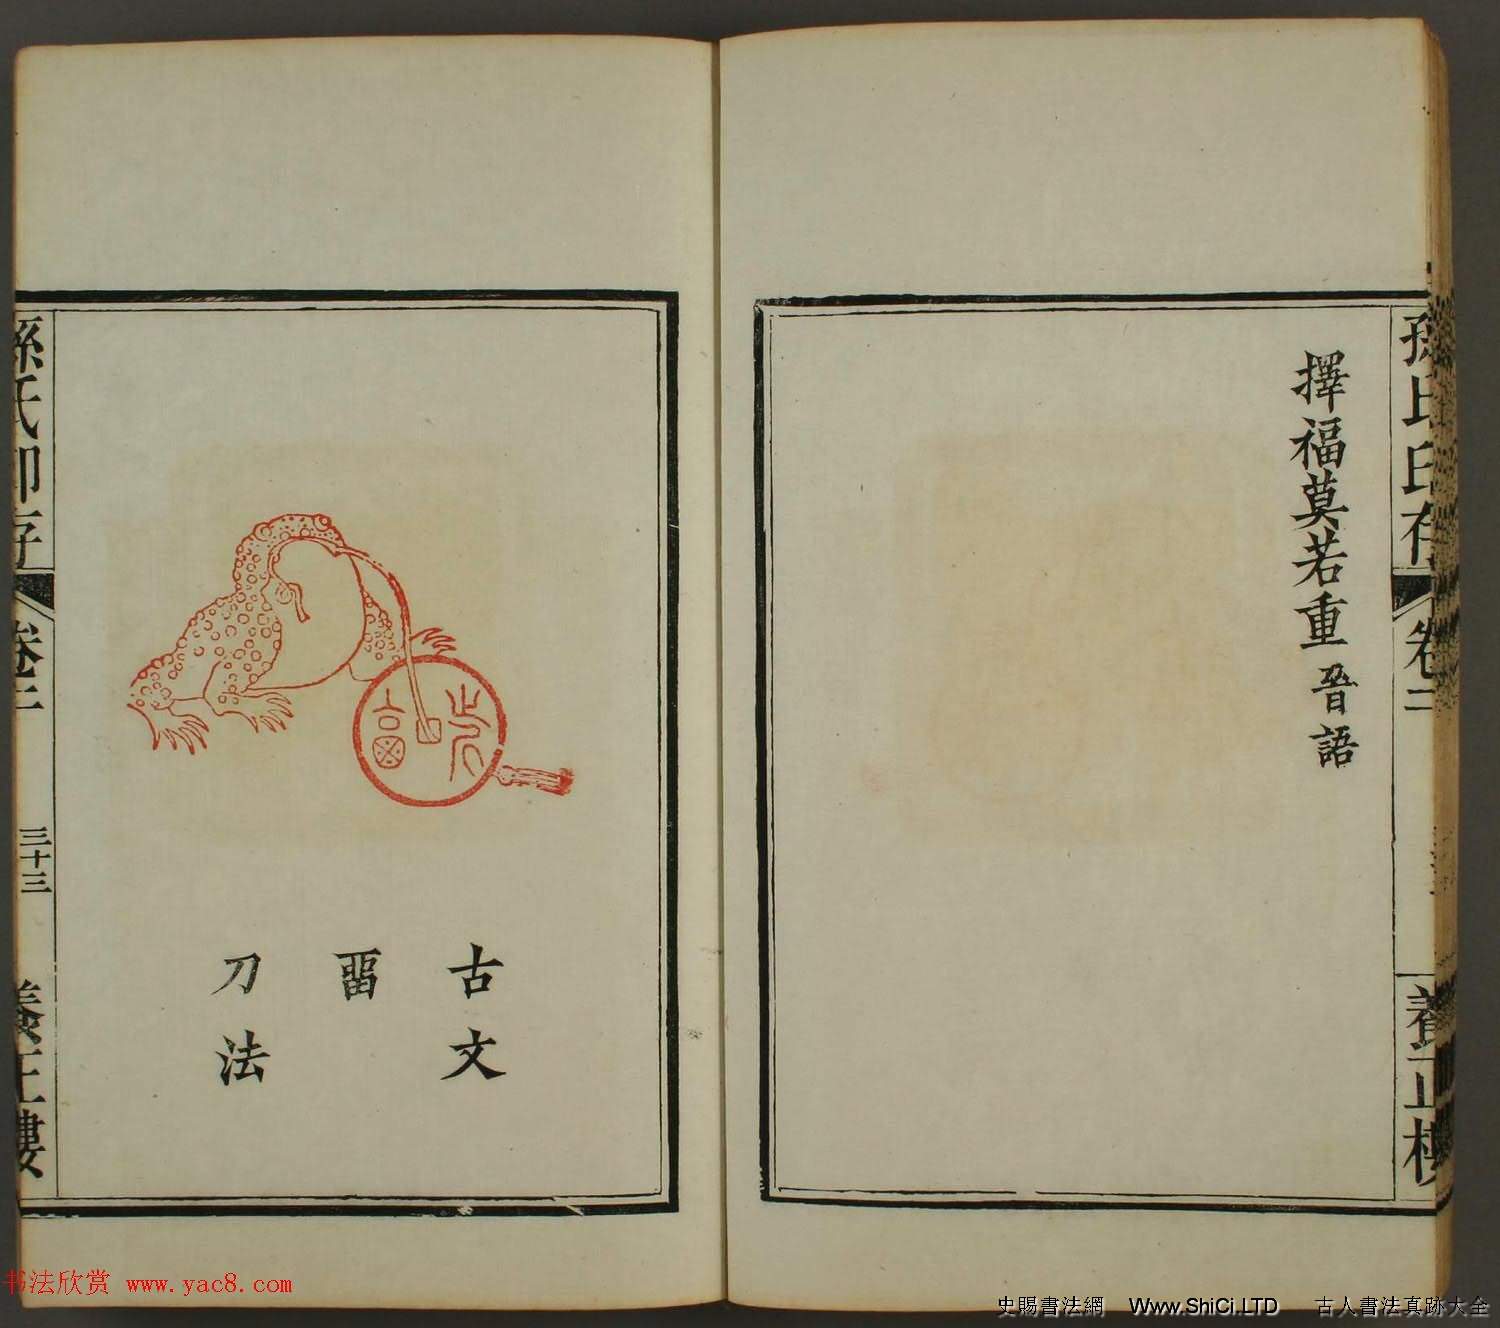 孫氏印存
卷二
養正樓
擇福莫若重 晉語
古文
畱
刀法
孫氏印存
卷二
三十三
養正樓
书法欣赏 www.yac8.com
史賜書法網 Www.ShiCi.LTD 古人書法真跡大全